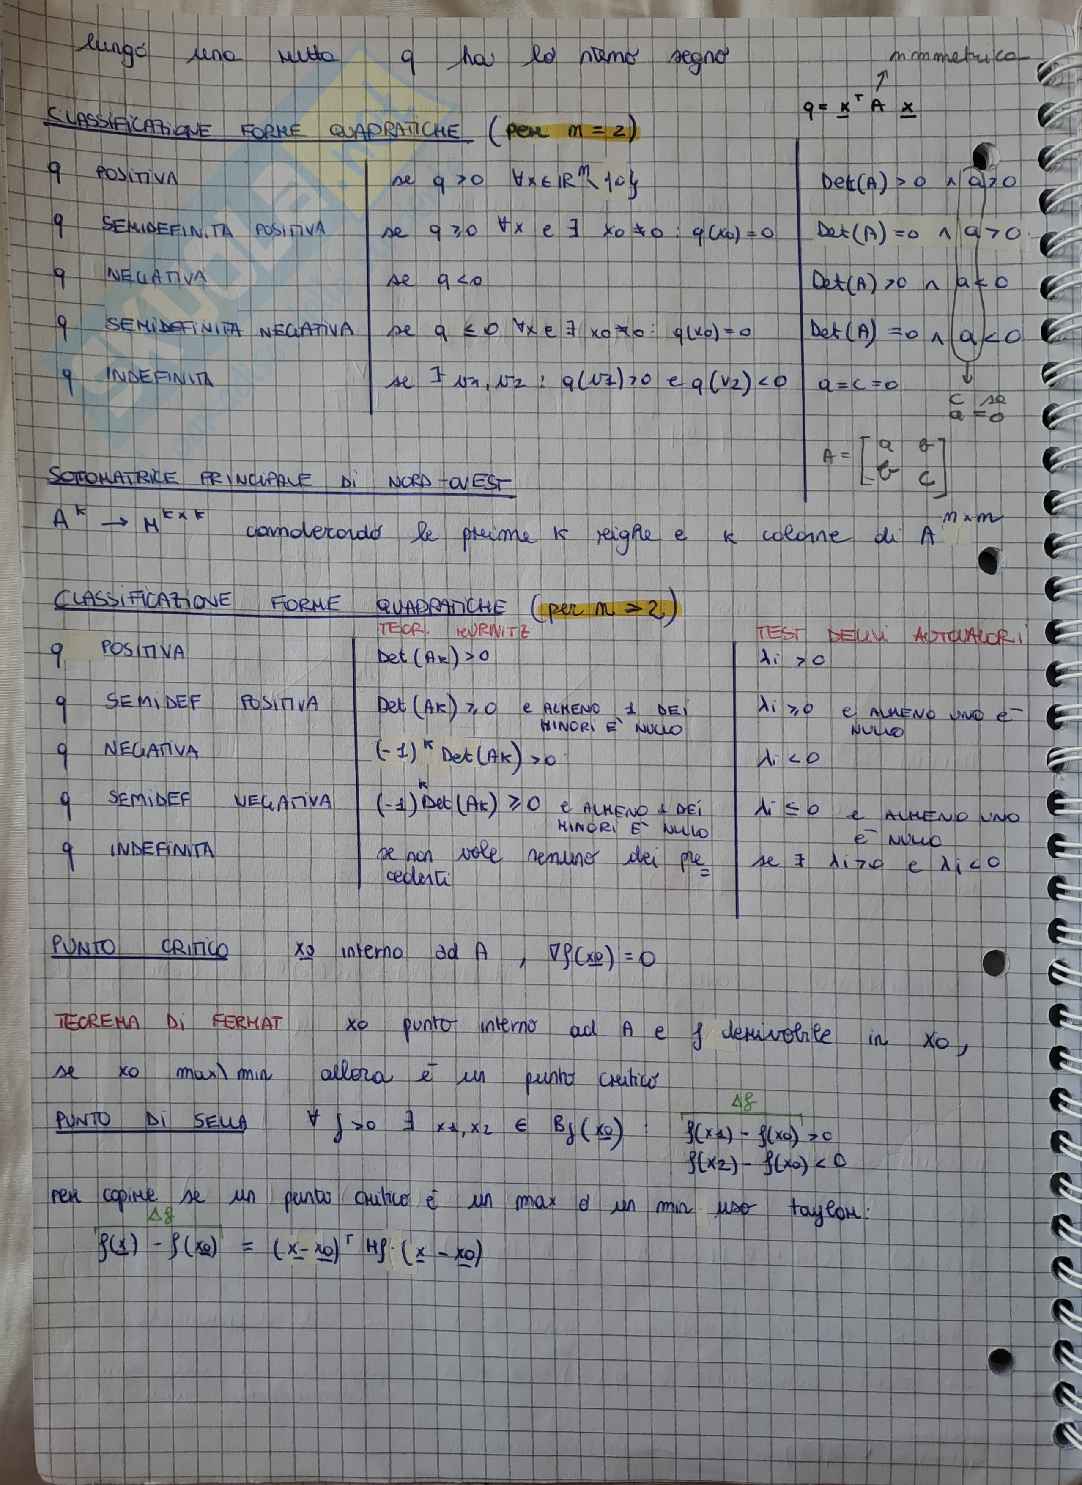 lungo una retta q ha lo stesso segno
simmetrica
q = x^T A x
CLASSIFICAZIONE FORME QUADRATICHE (per n = 2)
q POSITIVA se q > 0 ∀x ∈ ℝ^n \ {0} Det(A) > 0 ∧ a > 0
q SEMIDEFINITA POSITIVA se q ≥ 0 ∀x e ∃ x0 ≠ 0 : q(x0) = 0 Det(A) = 0 ∧ a > 0
q NEGATIVA se q < 0 Det(A) > 0 ∧ a < 0
q SEMIDEFINITA NEGATIVA se q ≤ 0 ∀x e ∃ x0 ≠ 0 : q(x0) = 0 Det(A) = 0 ∧ a < 0
q INDEFINITA se ∃ v1, v2 : q(v1) > 0 e q(v2) < 0 a = c = 0
c se
a = 0
A = [a b
b c]
SOTTOMATRICE PRINCIPALE Di NORD-OVEST
A^k → M^{k×k} considerando le prime k righe e k colonne di A^{n×n}
CLASSIFICAZIONE FORME QUADRATICHE (per n > 2)
TEOR. HURWITZ TEST DEGLI AUTOVALORI
q POSITIVA Det(Ak) > 0 λi > 0
q SEMIDEF POSITIVA Det(Ak) ≥ 0 e ALMENO 1 DEI λi ≥ 0 e ALMENO UNO È
MINORI È NULLO NULLO
q NEGATIVA (-1)^k Det(Ak) > 0 λi < 0
q SEMIDEF NEGATIVA (-1)^k Det(Ak) ≥ 0 e ALMENO 1 DEI λi ≤ 0 e ALMENO UNO
MINORI È NULLO È NULLO
q INDEFINITA se non vale nessuno dei pre= se ∃ λi > 0 e λi < 0
cedenti
PUNTO CRITICO x0 interno ad A , ∇f(x0) = 0
TEOREMA Di FERMAT x0 punto interno ad A e f derivabile in x0,
se x0 max\min allora è un punto critico
Δf
PUNTO Di SELLA ∀ ρ > 0 ∃ x1, x2 ∈ Bρ(x0) : f(x1) - f(x0) > 0
f(x2) - f(x0) < 0
per capire se un punto critico è un max o un min uso taylor:
Δf
f(x) - f(x0) = (x - x0)^T Hf · (x - x0)